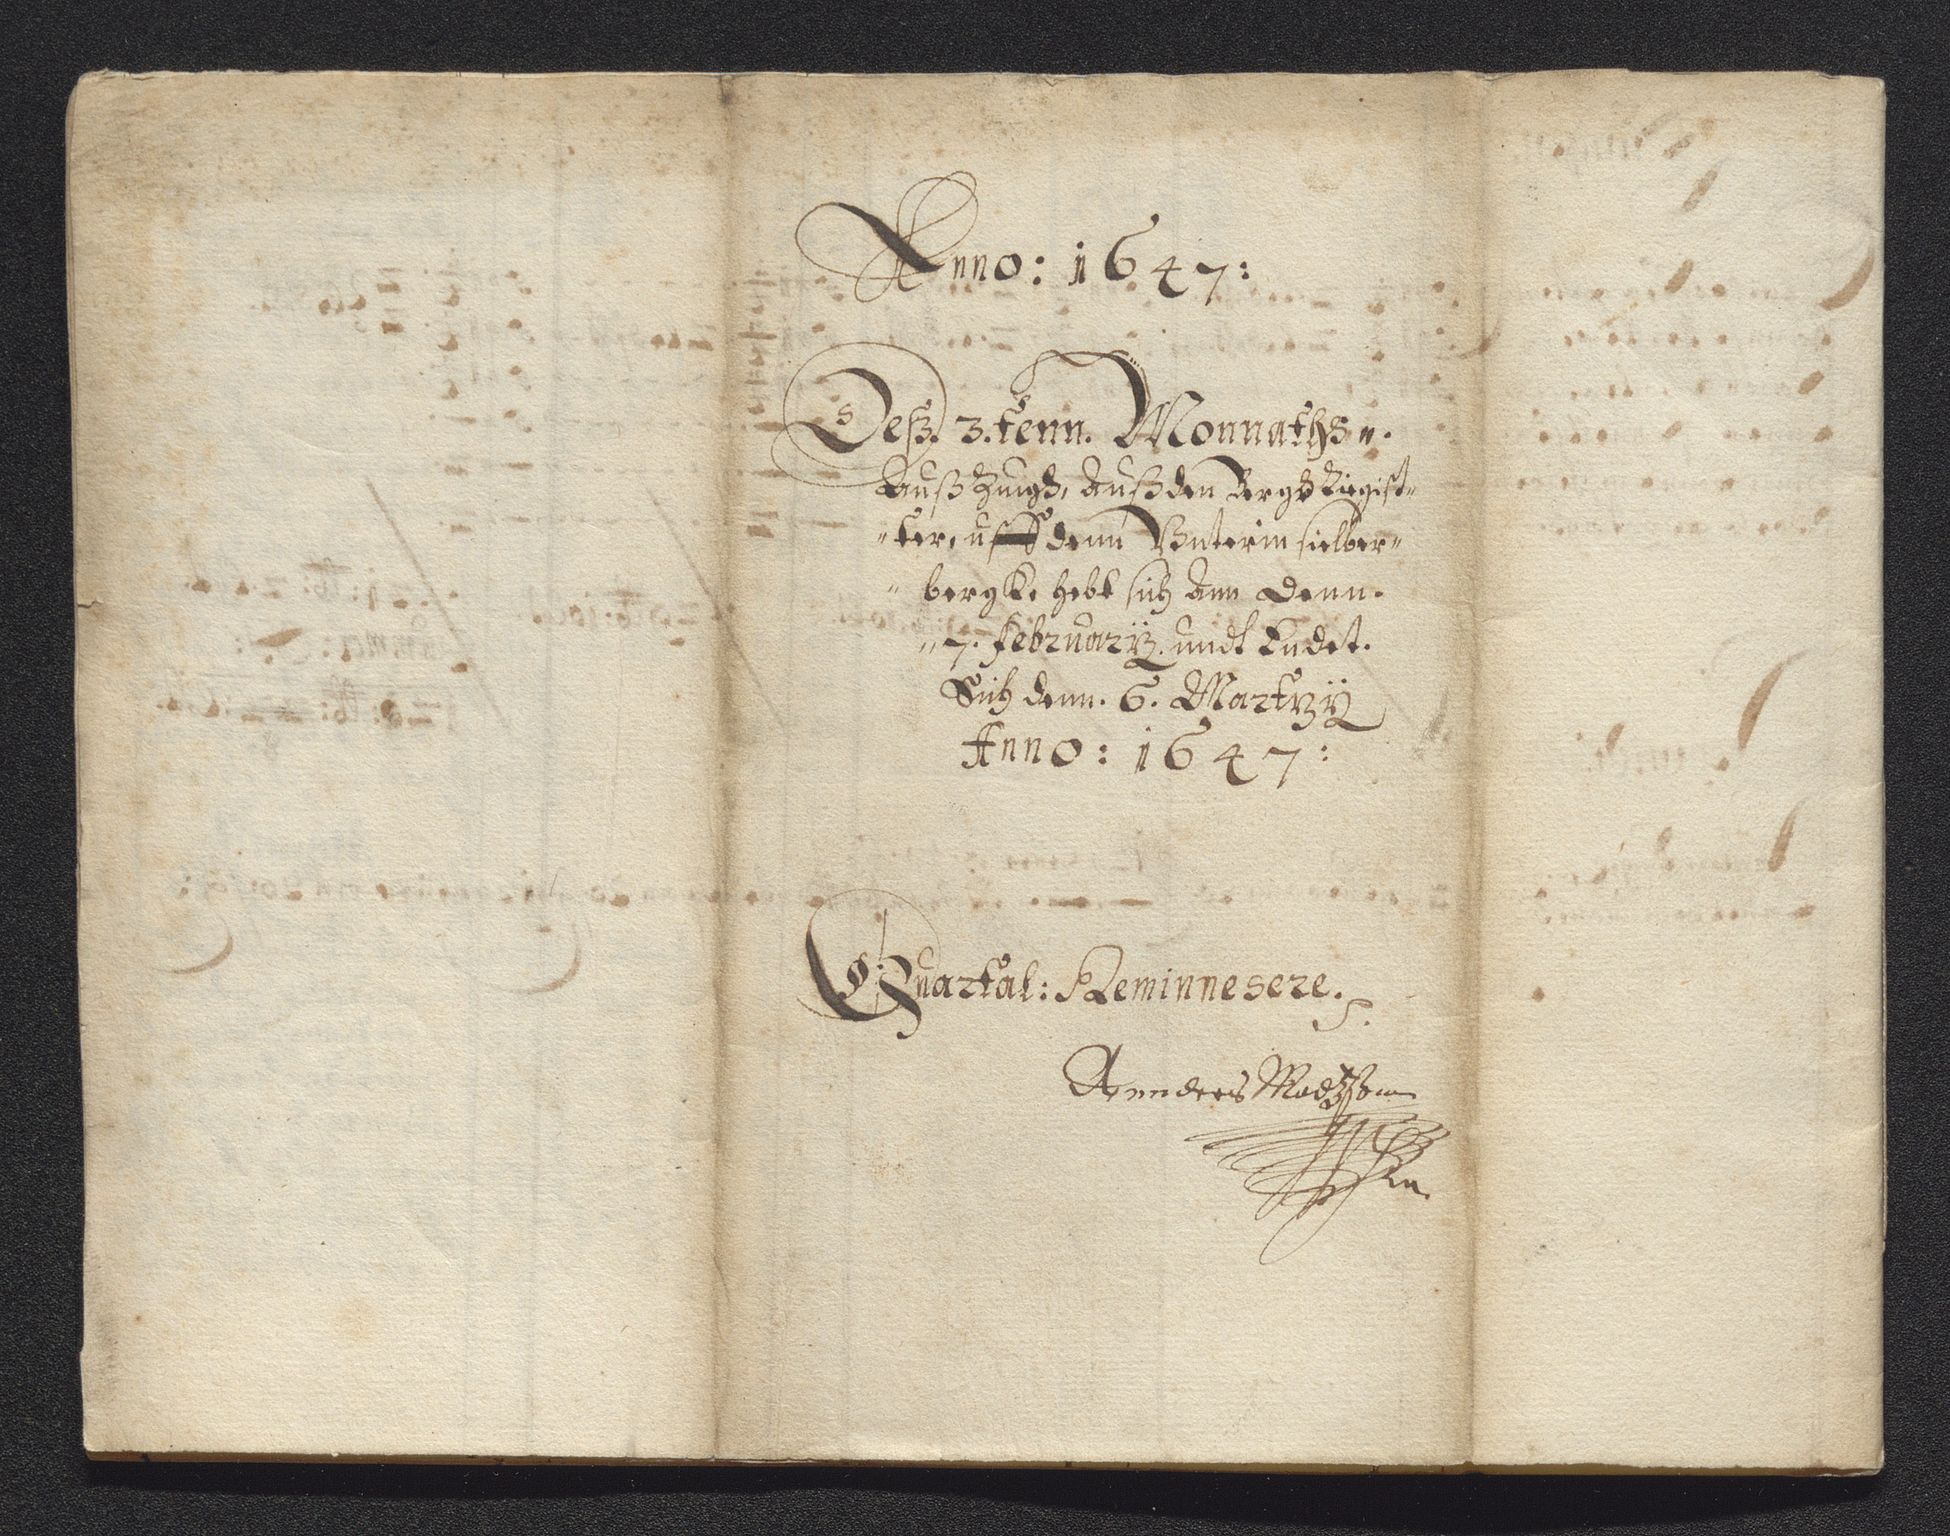 Anno: 1647:
Deß. 3. tenn. Monnaths.
Auß Zuigs, Auß den Bergs Regist-
-ter, uff denn Unterin silber-
bergk. hebt sich ann Denn.
7. februarÿ. undt Endet.
Sich denn. 6. Martzÿ
Anno: 1647:
Quartal: Reminnesere.
Annders Madtzson